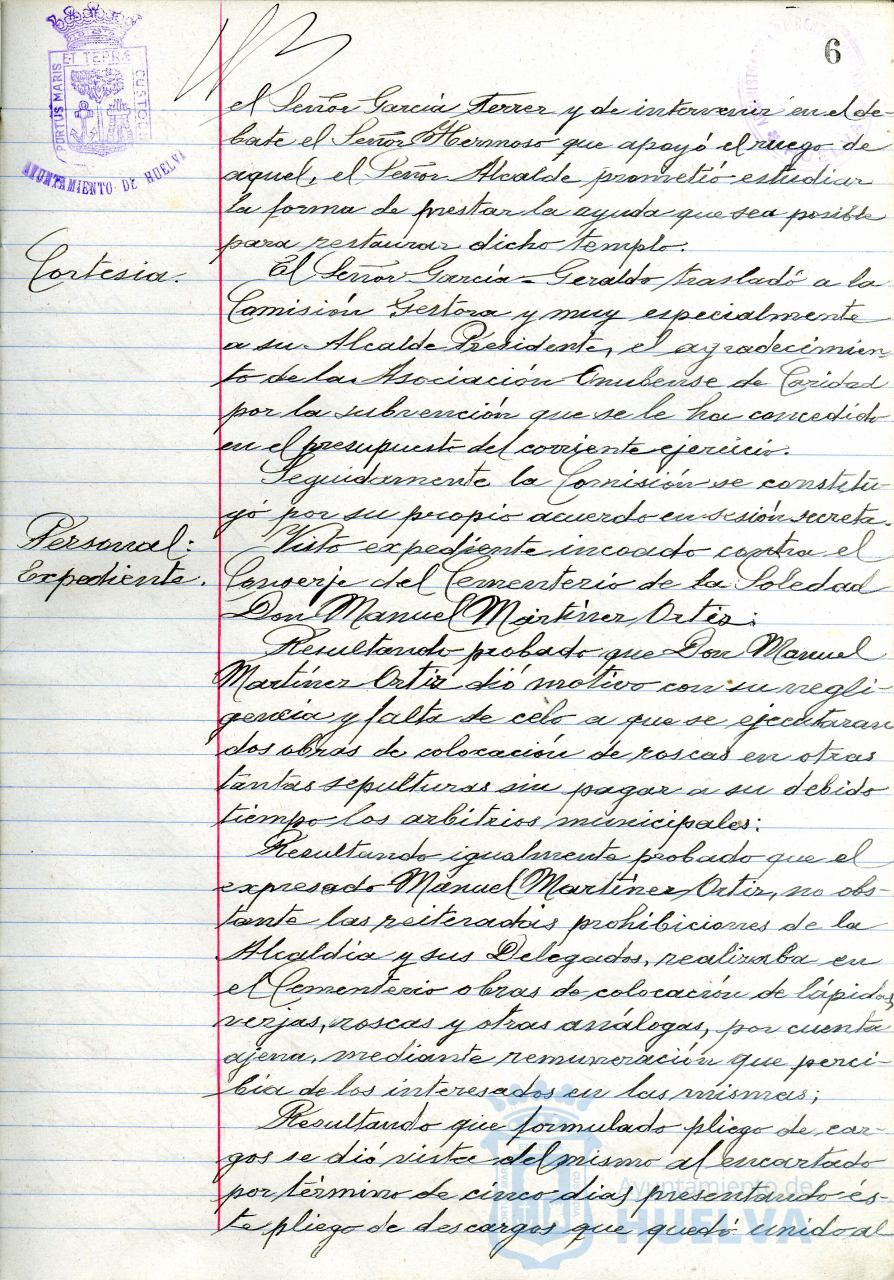 6
PORTUS MARIS ET TERRÆ CUSTODIA
AYUNTAMIENTO DE HUELVA
el Señor García Ferrer y de intervenir en el de-
bate el Señor Hermoso que apoyó el ruego de
aquel, el Señor Alcalde prometió estudiar
la forma de prestar la ayuda que sea posible
para restaurar dicho templo.
Cortesia.
El Señor García-Geraldo trasladó a la
Comisión Gestora y muy especialmente
a su Alcalde Presidente, el agradecimien-
to de la Asociación Onubense de Caridad
por la subvención que se le ha concedido
en el presupuesto del corriente ejercicio.
Seguidamente la Comisión se constitu-
yó por su propio acuerdo en sesión secreta.
Personal:
Expediente.
Visto expediente incoado contra el
Conserje del Cementerio de la Soledad
Don Manuel Martínez Ortiz:
Resultando probado que Don Manuel
Martínez Ortiz dió motivo con su negli-
gencia y falta de celo a que se ejecutaran
dos obras de colocación de roscas en otras
tantas sepulturas sin pagar a su debido
tiempo los arbitrios municipales:
Resultando igualmente probado que el
expresado Manuel Martínez Ortiz, no obs-
tante las reiteradas prohibiciones de la
Alcaldía y sus Delegados, realizaba en
el Cementerio obras de colocación de lápidas,
verjas, roscas y otras análogas, por cuenta
ajena, mediante remuneración que perci-
bia de los interesados en las mismas;
Resultando que formulado pliego de car-
gos se dió vista del mismo al encartado
por término de cinco dias presentando és-
te pliego de descargos que quedó unido al
Ayuntamiento de
HUELVA